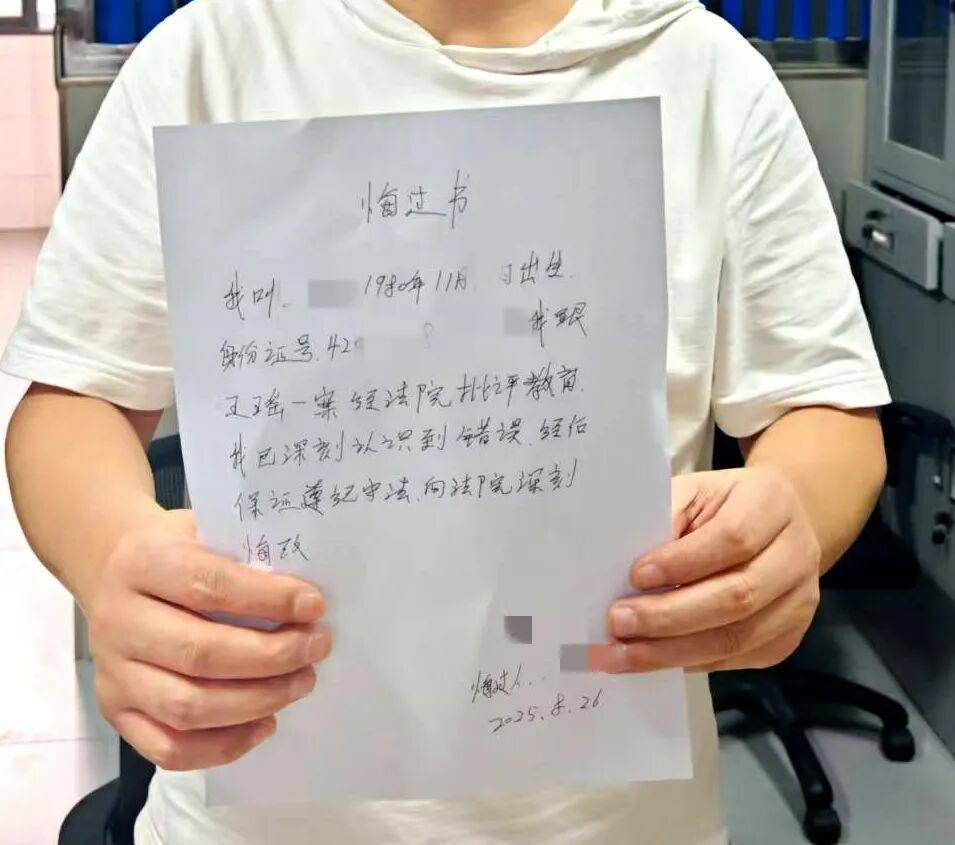 悔过书
我叫、 1980年11月 日出生.
身份证号、42 我跟
王瑶一案经法院批评教育.
我已深刻认识到错误、经后
保证遵纪守法、向法院深刻
悔改
悔过人..
2025.8.26